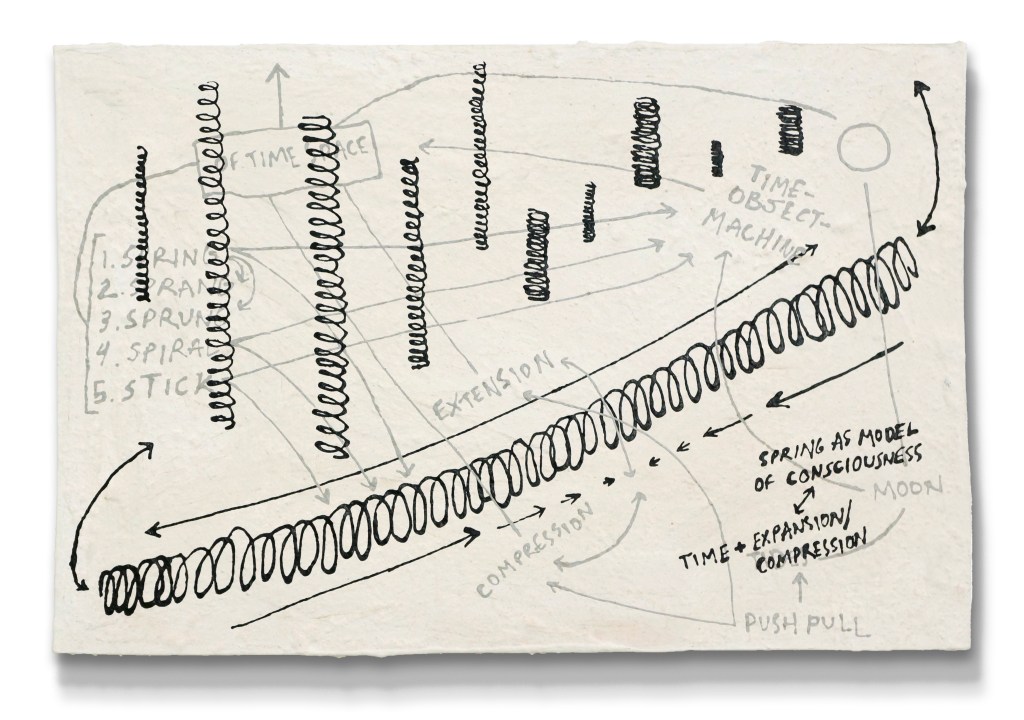 OF TIME SPACE
TIME-
OBJECT-
MACHINE
1. SPRING
2. SPRANG
3. SPRUNG
4. SPIRAL
5. STICK
EXTENSION
COMPRESSION
SPRING AS MODEL
OF CONSCIOUSNESS
MOON
TIME + EXPANSION/
COMPRESSION
PUSH PULL